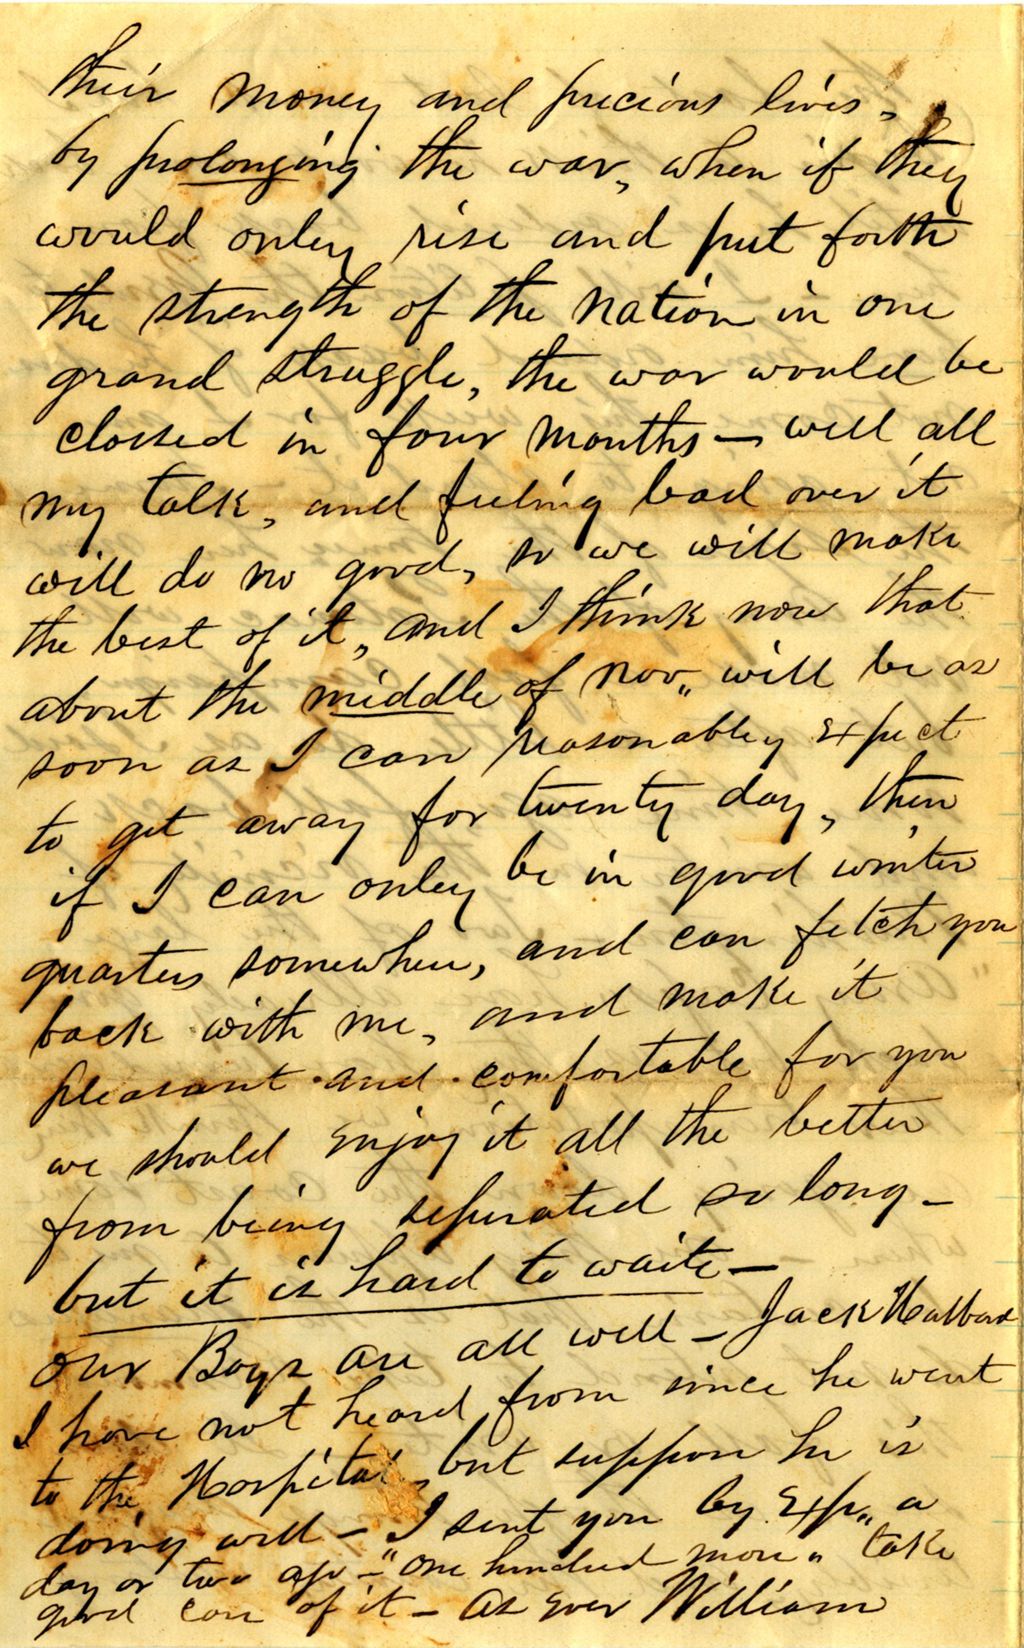 their money and precious lives,
by prolonging the war, when if they
would onley rise and put forth
the strength of the nation in one
grand struggle, the war would be
clossed in four months — well all
my talk, and feeling bad over it
will do no good, so we will make
the best of it, and I think now that
about the middle of Nov,, will be as
soon as I can reasonabley expect
to get away for twenty day, then
if I can onley be in good winter
quarters somewhere, and can fetch you
back with me, and make it
pleasant and comfortable for you
we should enjoy it all the better
from being seperated so long —
but it is hard to waite —
our Boys are all well — Jack Halbard
I have not heard from since he went
to the Hospital, but suppose he is
doing well — I sent you by Exp,, a
day or two ago — "one hundred more" take
good care of it — As Ever William